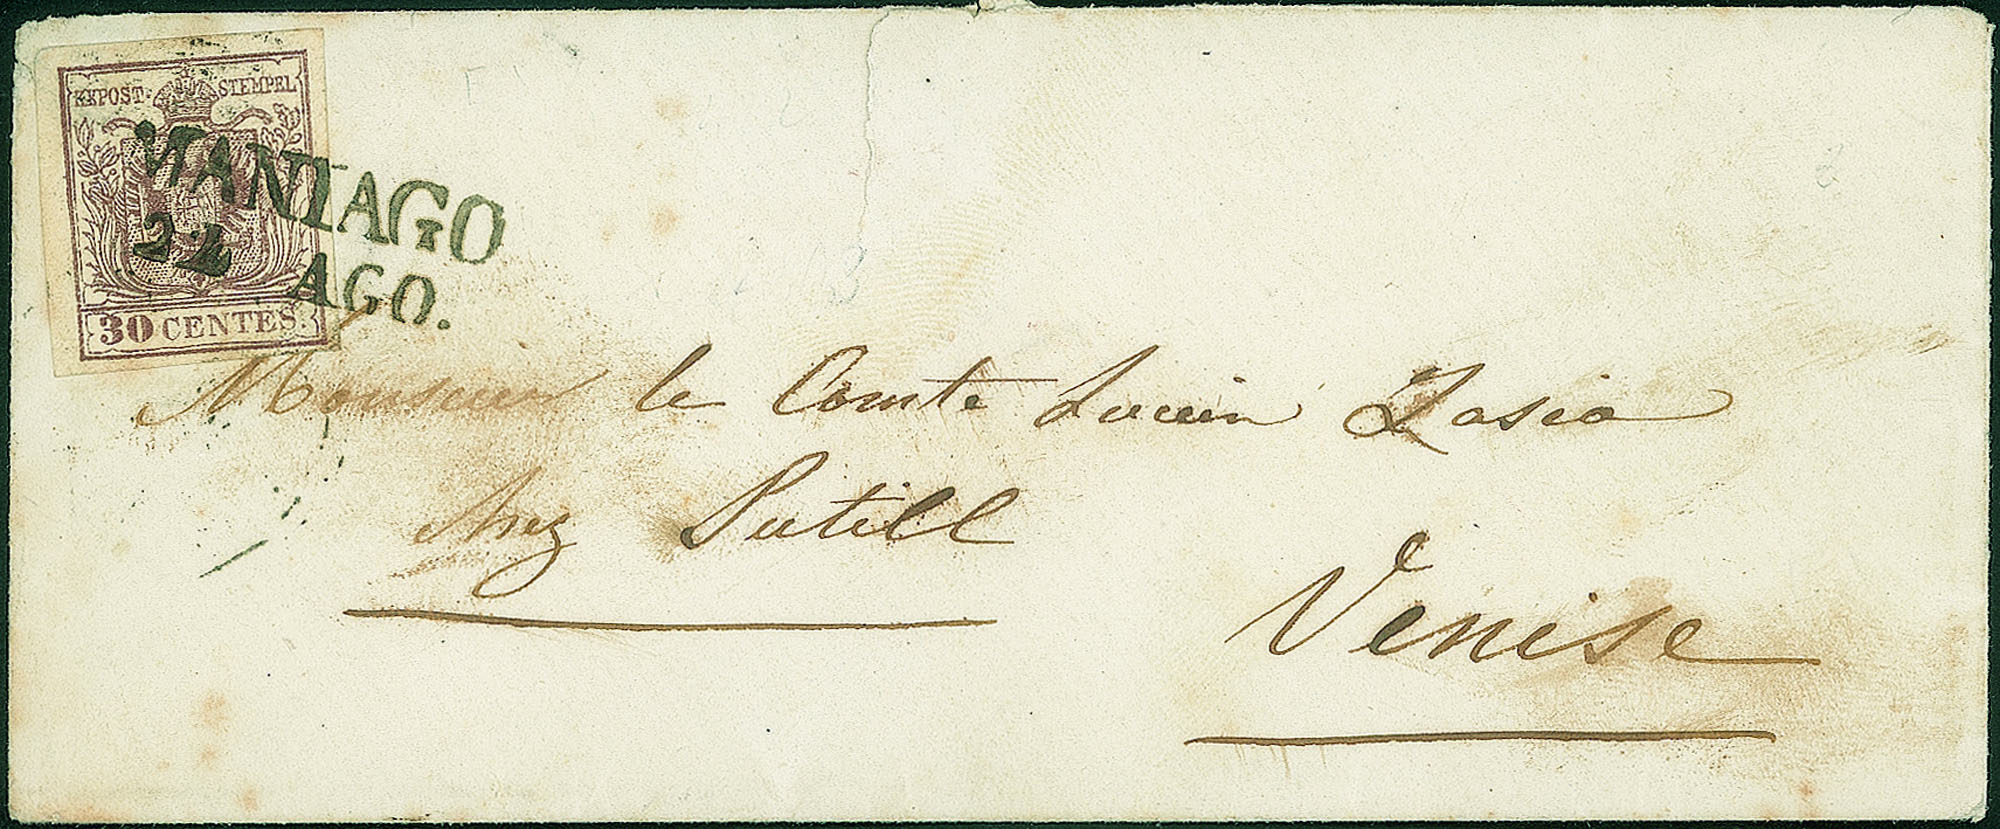 KKPOST-STEMPEL
MANIAGO
22 AGO.
30 CENTES.
Monsieur le Comte Lucien Zasio
chez Putell
Venise